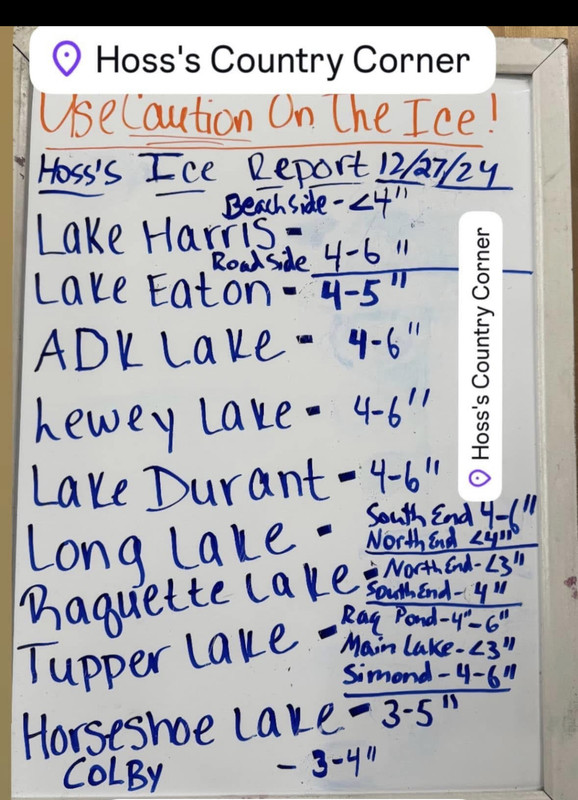 Hoss's Country Corner
Use Caution On The Ice!
Hoss's Ice Report 12/27/24
Beach side - <4"
Lake Harris -
Road Side 4-6"
Lake Eaton - 4-5"
ADK Lake - 4-6"
Lewey Lake - 4-6"
Lake Durant - 4-6"
Long Lake - South End 4-6"
North End <4"
Raquette Lake - North End - <3"
South End - 4"
Tupper Lake - Raq Pond - 4"-6"
Main Lake - <3"
Simond - 4-6"
Horseshoe Lake - 3-5"
COLBY - 3-4"
Hoss's Country Corner